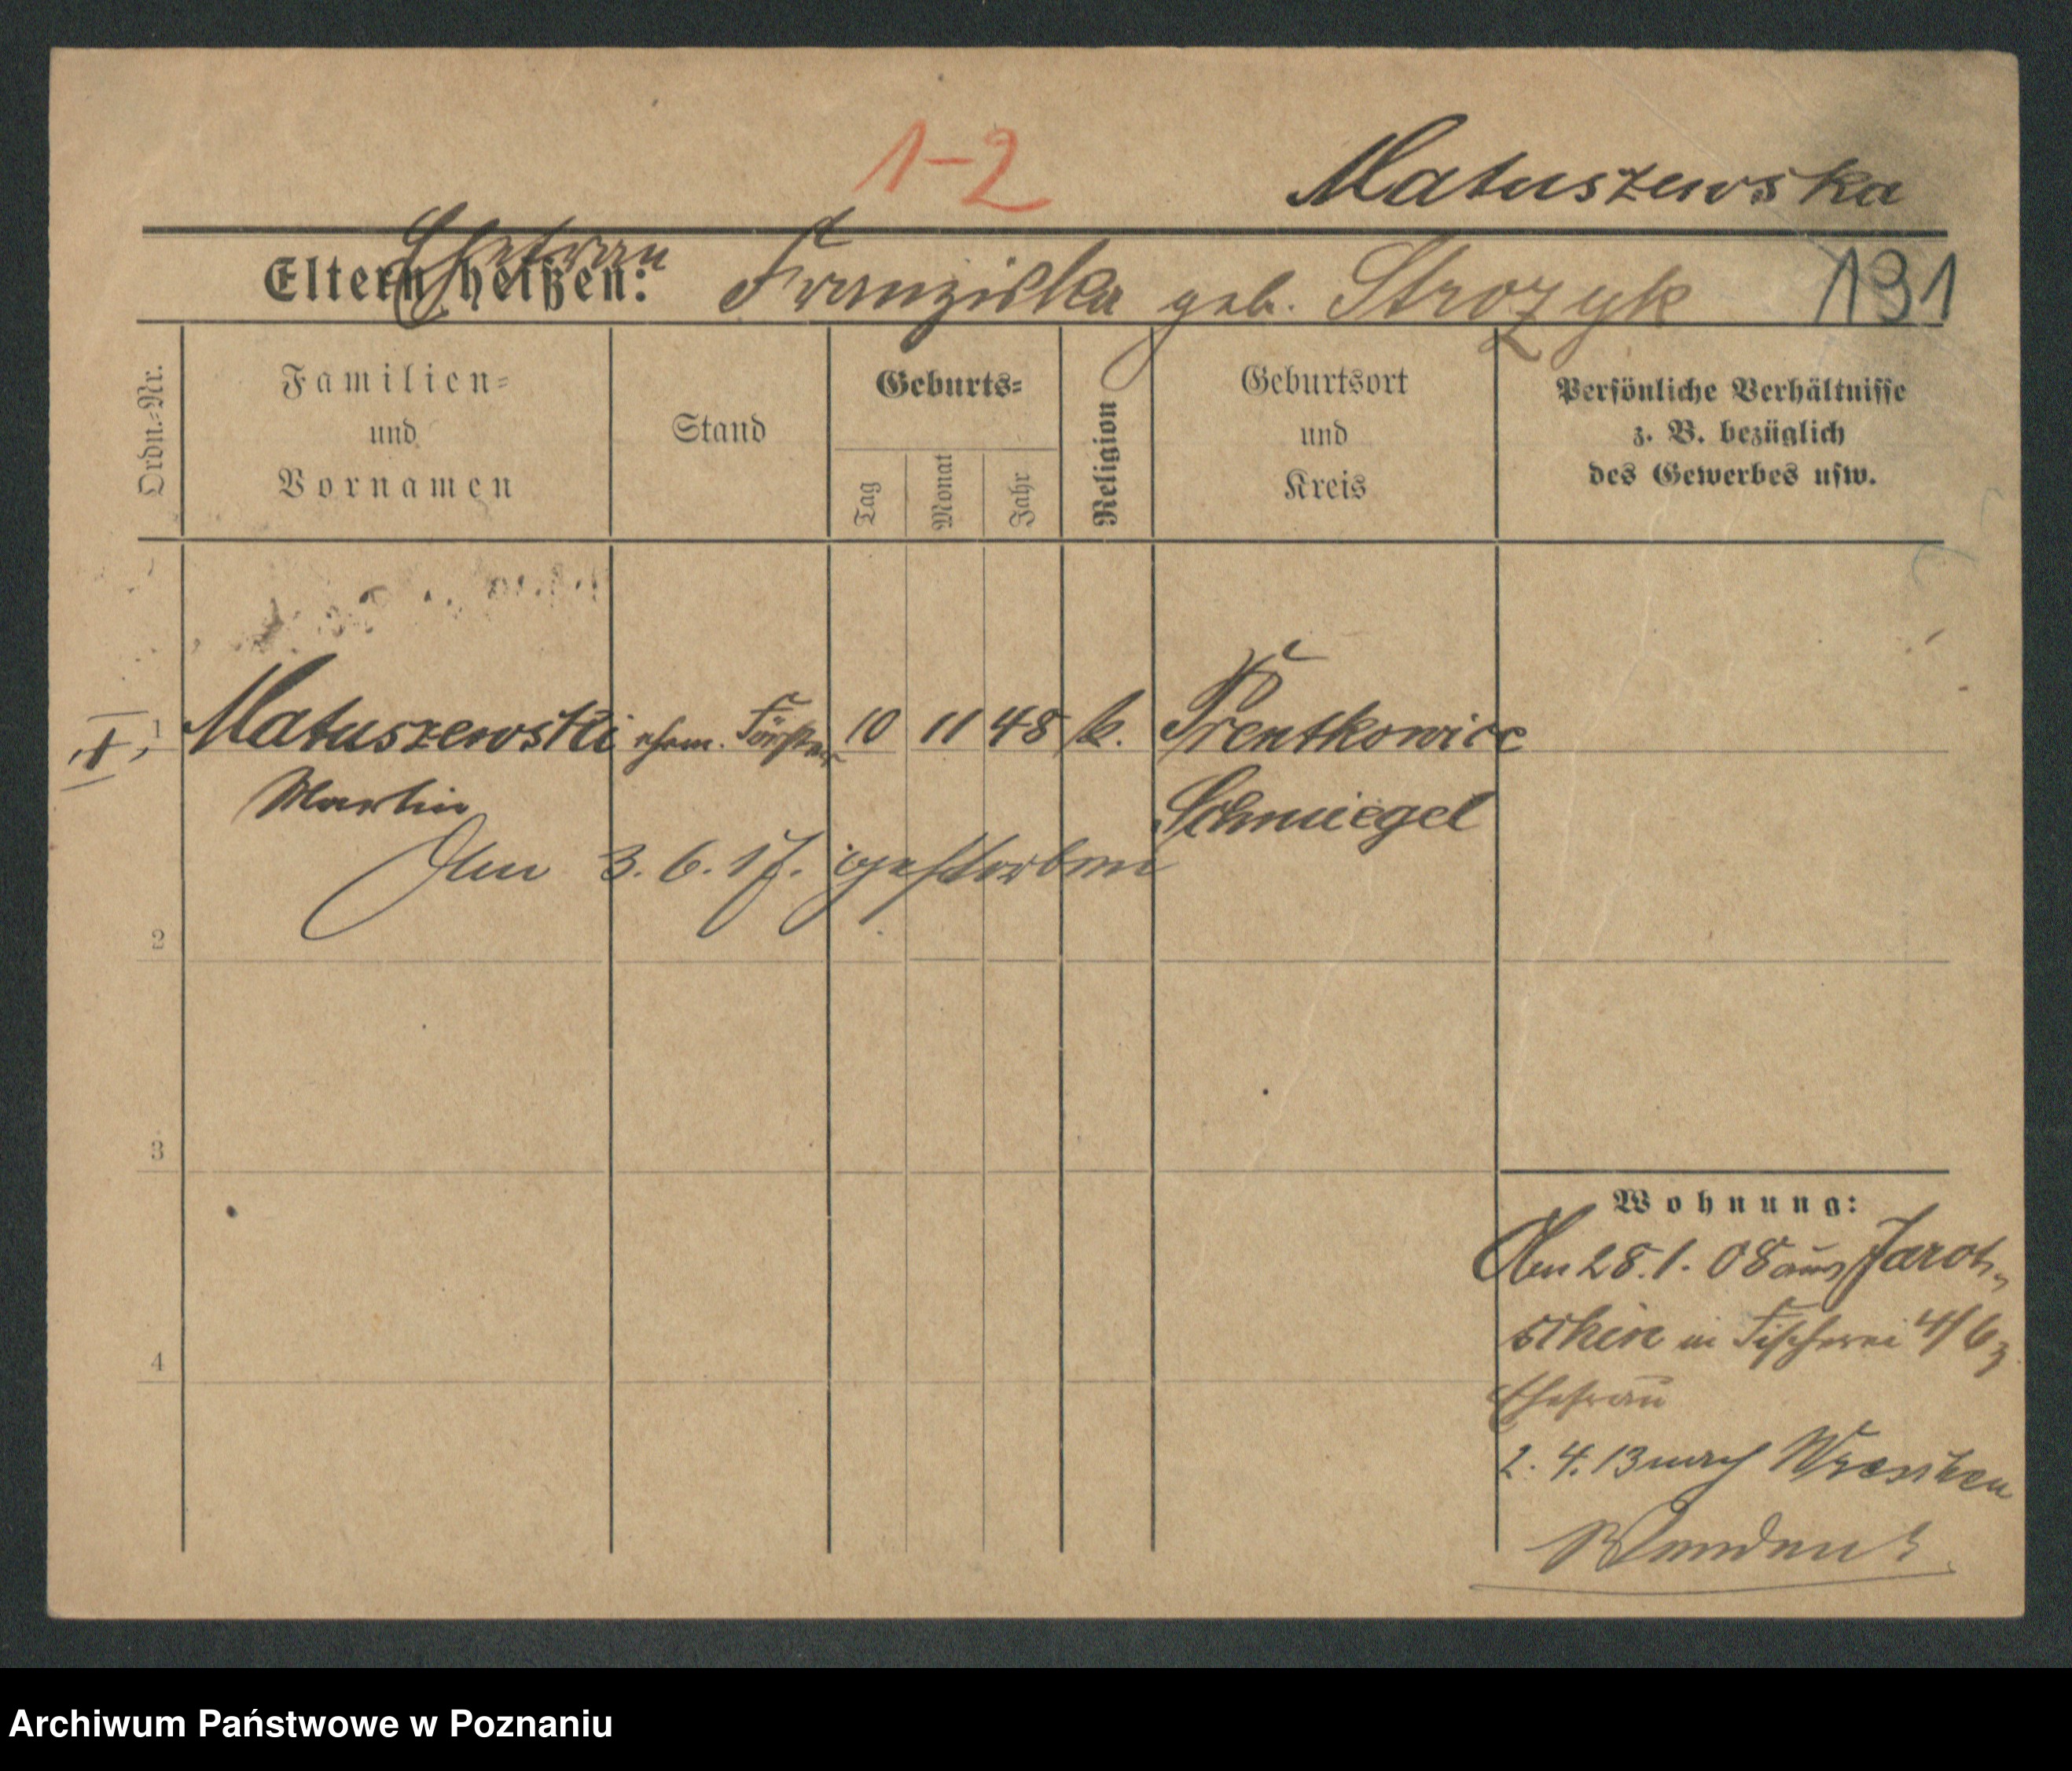 1-2
Matuszewska
Ehefrau
Eltern heißen: Franziska geb. Strozyk 191
Ordn.-Nr.
Familien-
und
Vornamen
Stand
Geburts-
Tag
Monat
Jahr
Religion
Geburtsort
und
Kreis
Persönliche Verhältnisse
z. B. bezüglich
des Gewerbes usw.
1 Matuszewski ehem. Förster 10 11 48 k.
Martin Schmiegel
Am 3.6.17. gestorben
2
3
4
Wohnung:
Am 28.1.08 aus Jarot-
schin in Fischerei 4/6 z
Ehefrau
2.4.13 nach Wreschen
Archiwum Państwowe w Poznaniu